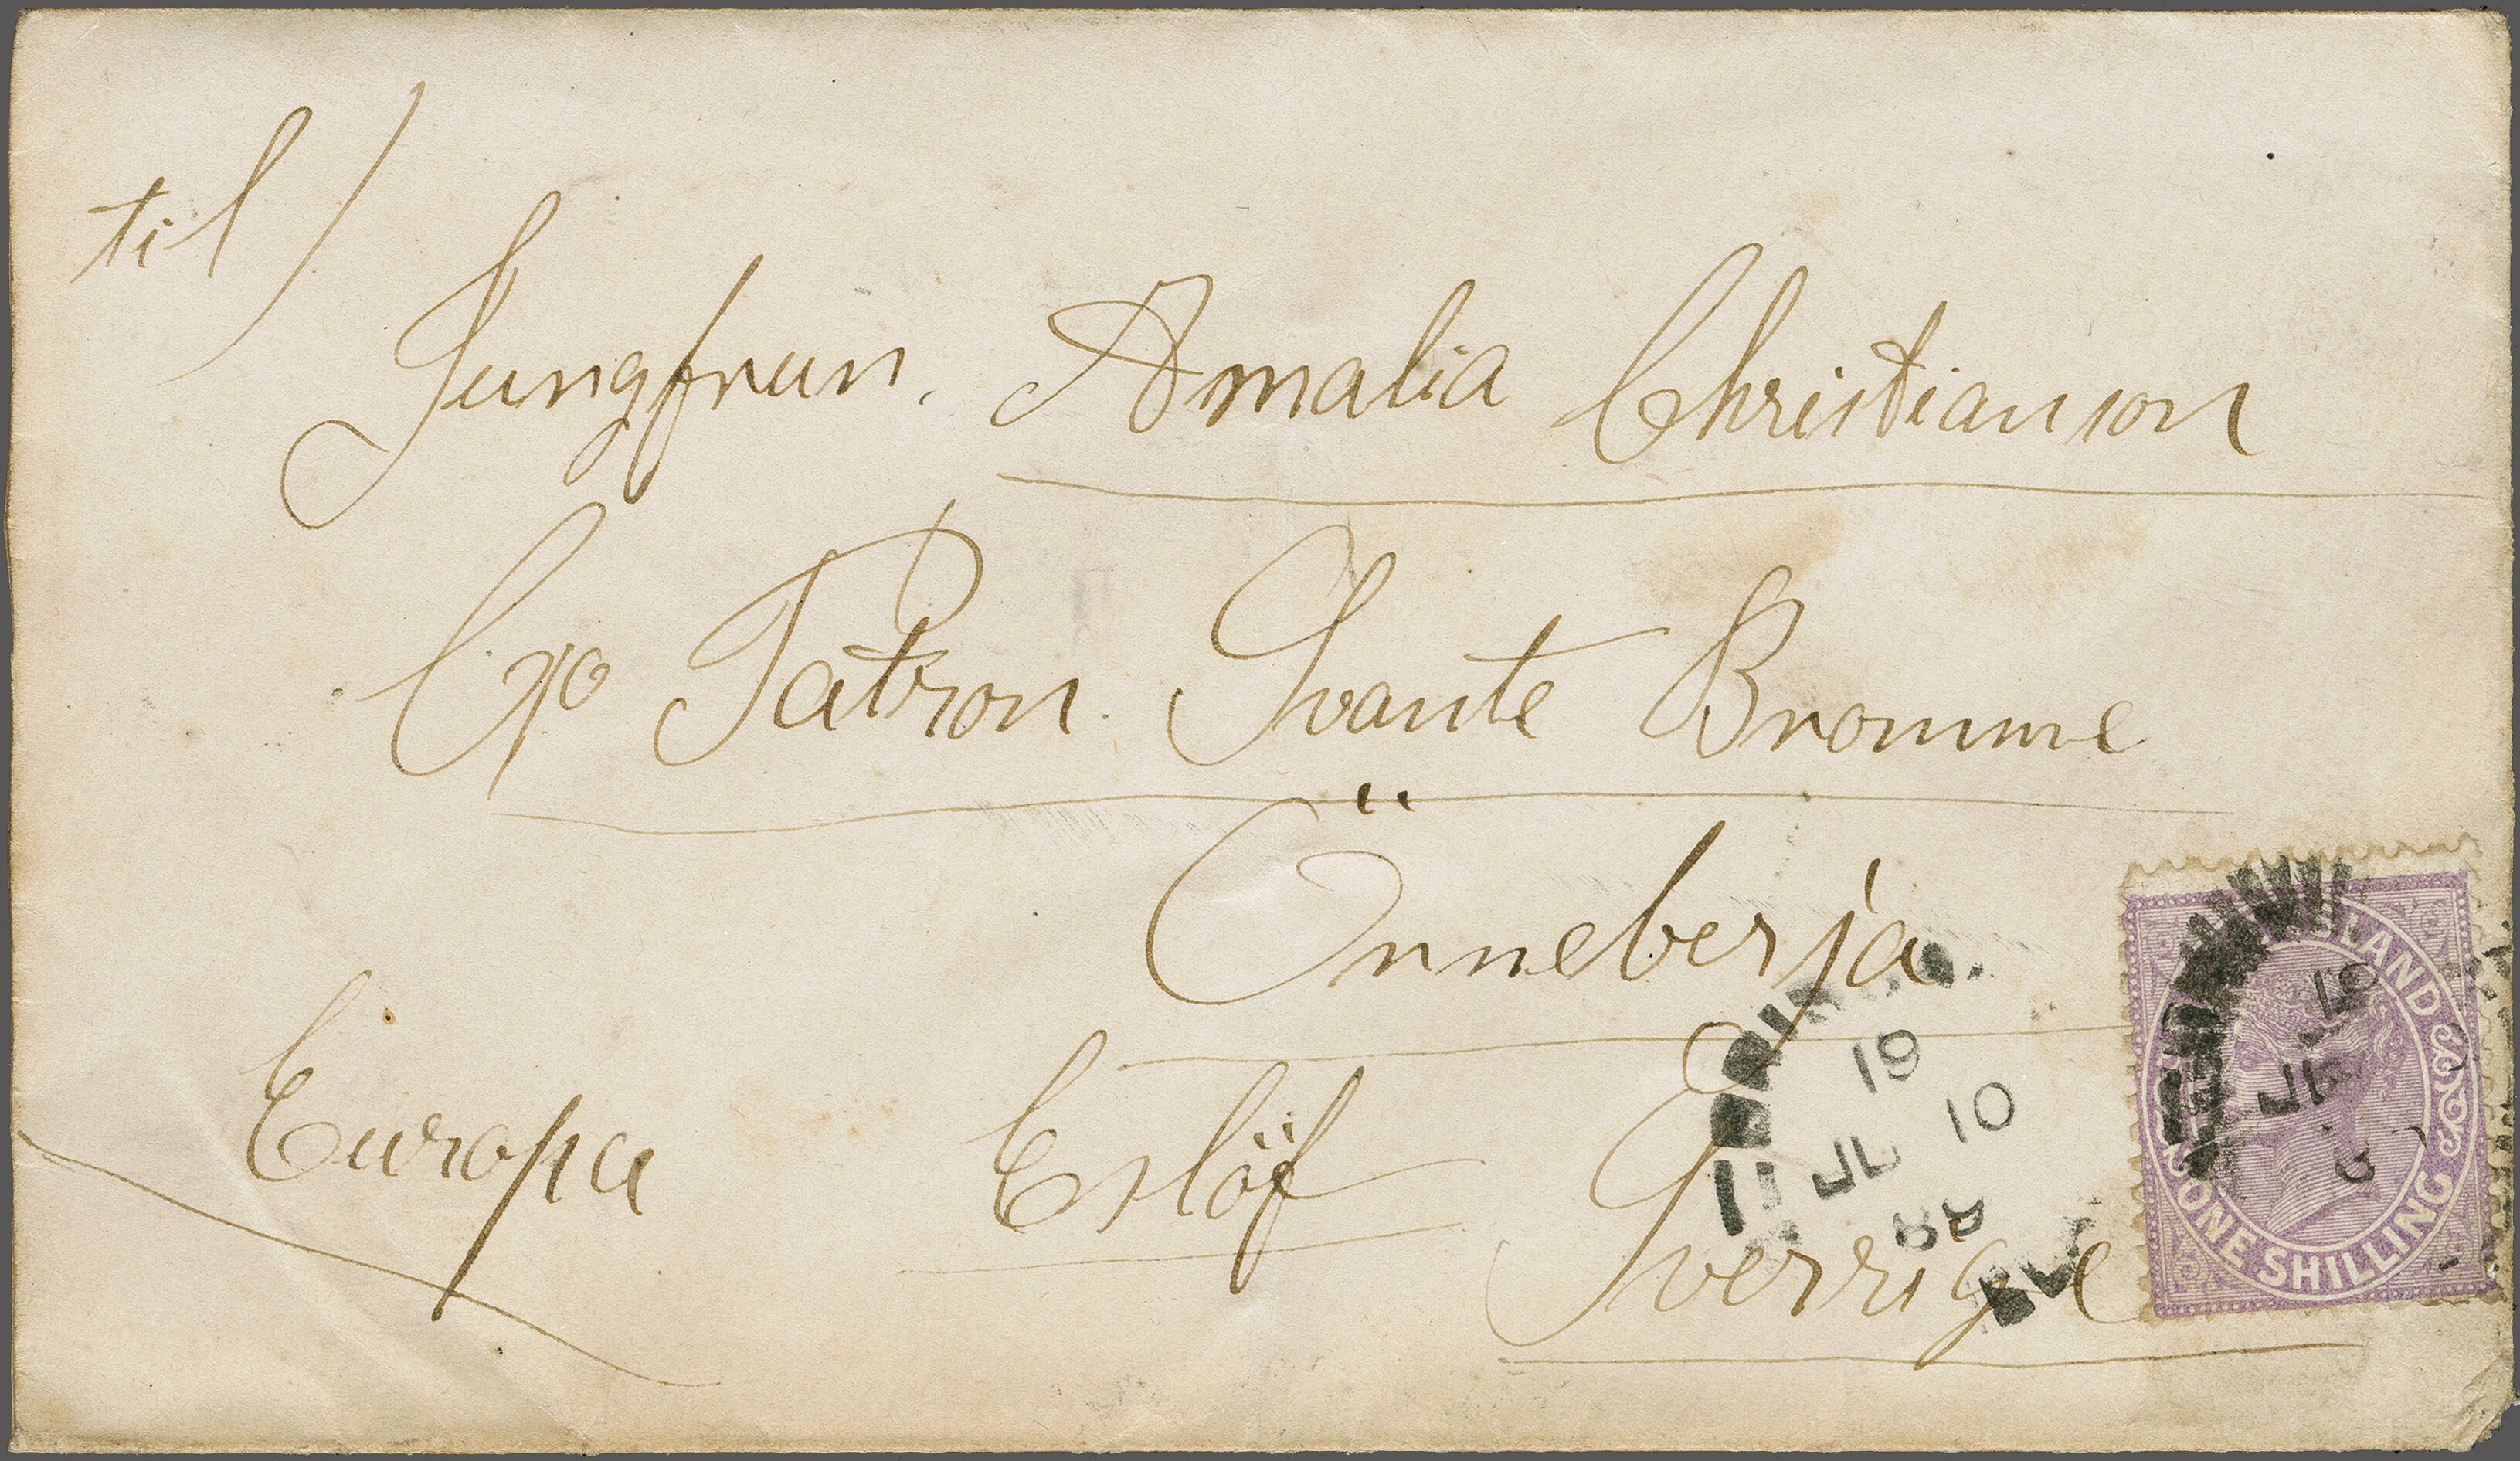 til/
Jungfrun. Amalia Christianson
C/o Patron. Svante Bromme
Önneberja.
Europa Eslöf Sverrige
19
JL 10
LAND
ONE SHILLING
19
JL